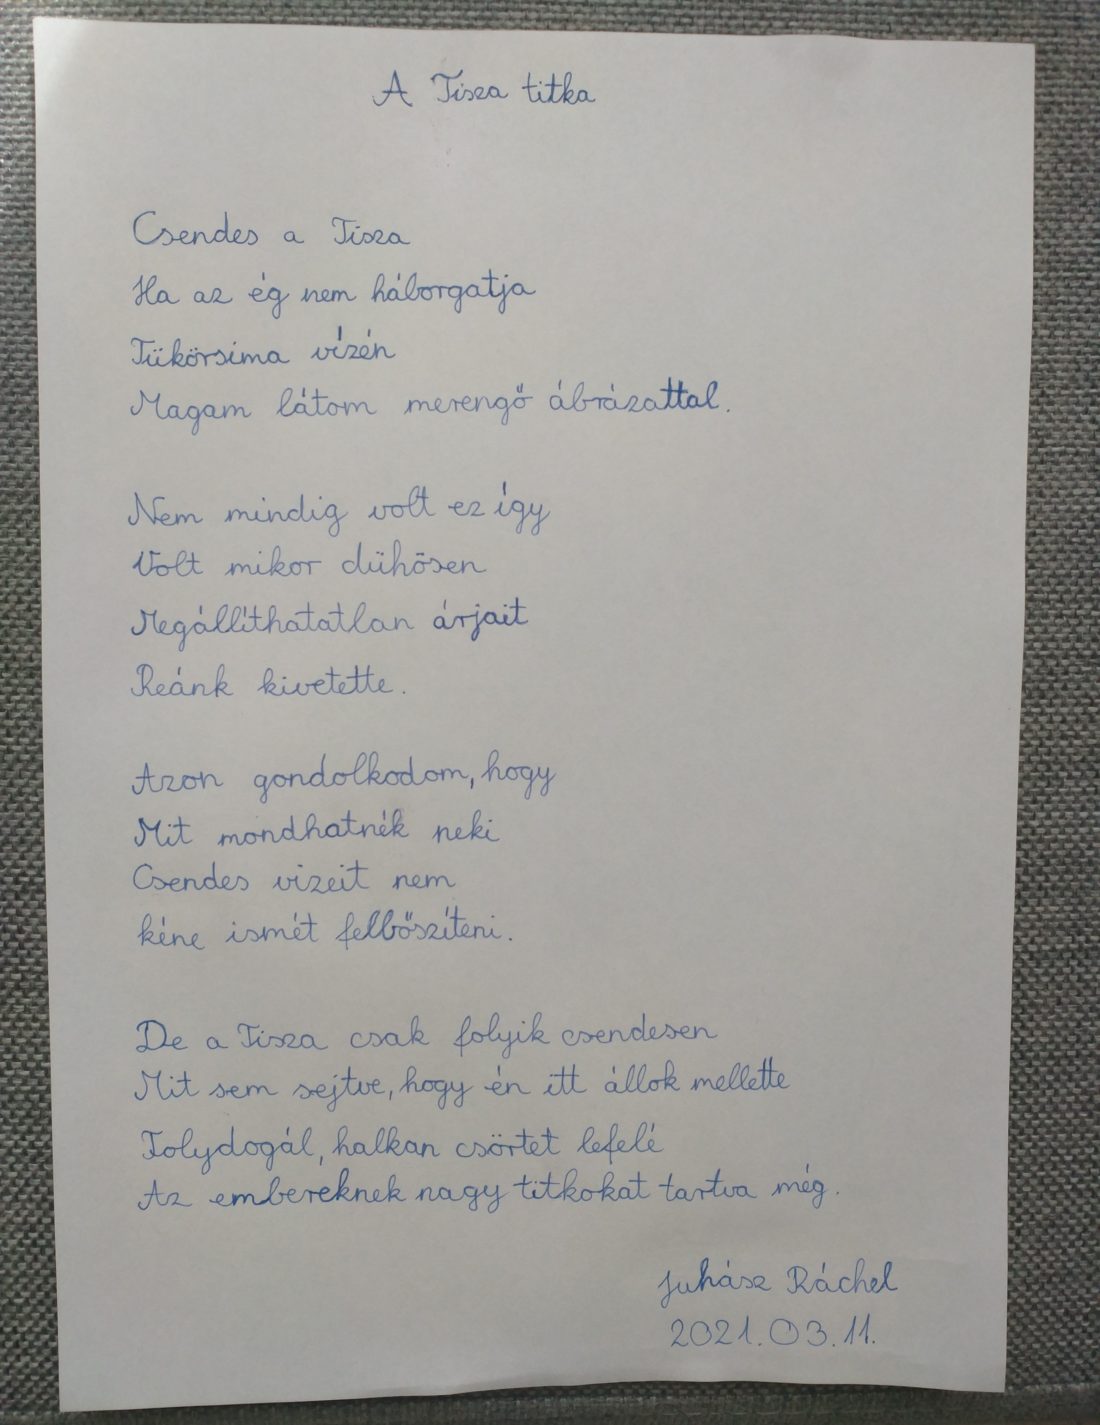 A Tisza titka
Csendes a Tisza
Ha az ég nem háborgatja
Tükörsima vízén
Magam látom merengő ábrázattal.
Nem mindig volt ez így
Volt mikor dühösen
Megállíthatatlan árjait
Reánk kivetette.
Azon gondolkodom, hogy
Mit mondhatnék neki
Csendes vizeit nem
kéne ismét felbőszíteni.
De a Tisza csak folyik csendesen
Mit sem sejtve, hogy én itt állok mellette
Folydogál, halkan csörtet lefelé
Az embereknek nagy titkokat tartva még.
Juhász Ráchel
2021.03.11.